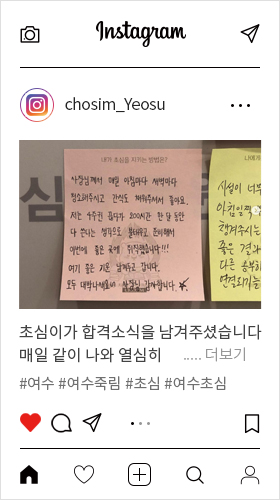 Instagram
chosim_Yeosu
내가 초심을 지키는 방법은?
사장님께서 매일 아침마다 새벽마다
청소해주시고 간식도 채워주셔서 좋아요.
저는 4주권 끊다가 200시간 한 달 동안
다 쓴다는 생각으로 불태우고 준비해서
이번에 좋은 곳에 취직했습니다!!!
여기 좋은 기운 남기고 갑니다.
모두 대박나세요!! 사장님 감사합니다.
심
나에게
시설이 너무
아침일찍
챙겨주시는
좋은 결과
다른 송부
초심이가 합격소식을 남겨주셨습니다
매일 같이 나와 열심히 ..... 더보기
#여수 #여수죽림 #초심 #여수초심